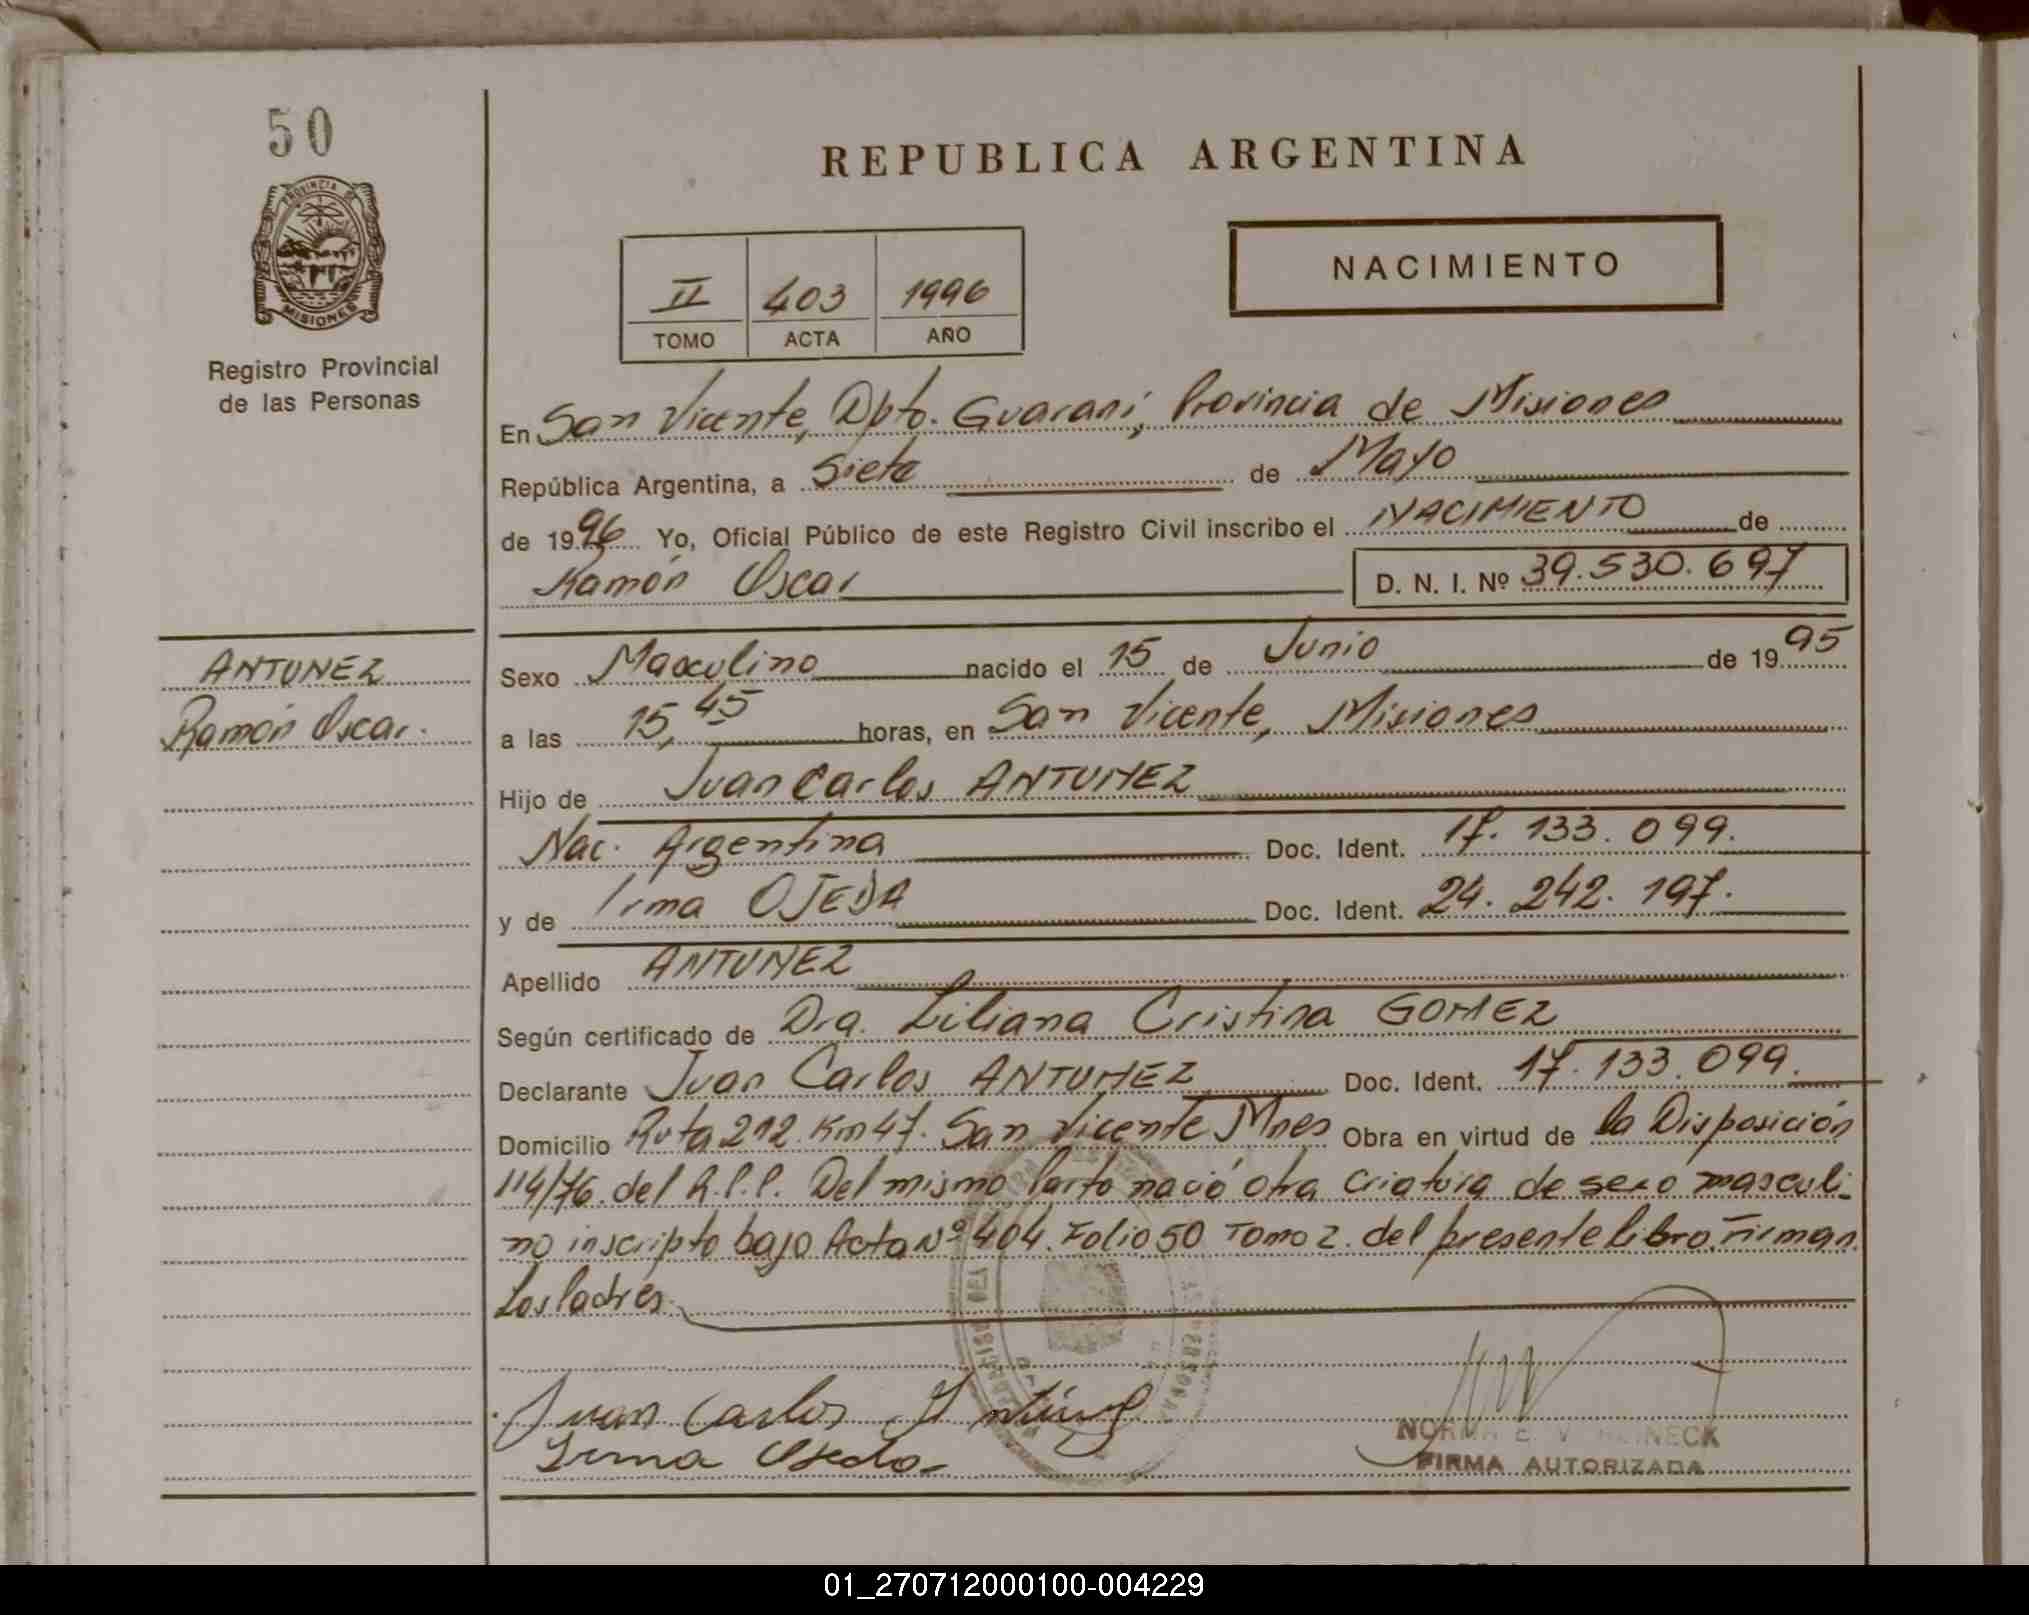 50
PROVINCIA DE
MISIONES
Registro Provincial
de las Personas
REPUBLICA ARGENTINA
II 403 1996
TOMO ACTA AÑO
NACIMIENTO
En San Vicente, Dpto. Guaraní, Provincia de Misiones
República Argentina, a Siete de Mayo
de 1996 Yo, Oficial Público de este Registro Civil inscribo el NACIMIENTO de
Ramón Oscar D. N. I. Nº 39.530.697
ANTUNEZ
Ramón Oscar.
Sexo Masculino nacido el 15 de Junio de 1995
a las 15,45 horas, en San Vicente, Misiones
Hijo de Juan Carlos ANTUNEZ
Nac. Argentina Doc. Ident. 17.133.099.
y de Irma OJEDA Doc. Ident. 24.242.197.
Apellido ANTUNEZ
Según certificado de Dra. Liliana Cristina GOMEZ
Declarante Juan Carlos ANTUNEZ Doc. Ident. 17.133.099.
Domicilio Ruta 212. Km 47. San Vicente Mnes Obra en virtud de la Disposición
114/76. del R.P.P. Del mismo Parto nació otra criatura de sexo masculi-
no inscripto bajo Acta Nº 404. Folio 50 Tomo 2. del presente libro. Firman
Los Padres.
Juan Carlos Antúnez
Irma Ojeda
NORMA E. REINECK
FIRMA AUTORIZADA
01_270712000100-004229